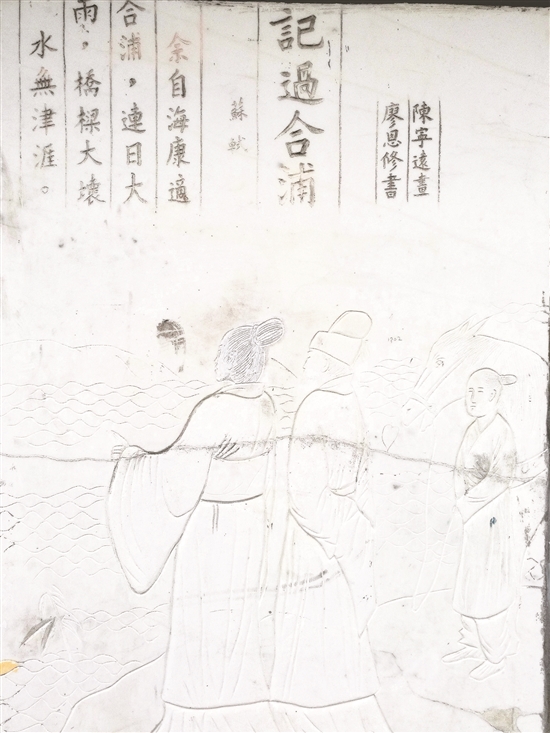 陳寧遠畫
廖恩修書
記過合浦
蘇軾
余自海康適
合浦，連日大
雨，橋樑大壞
水無津涯。